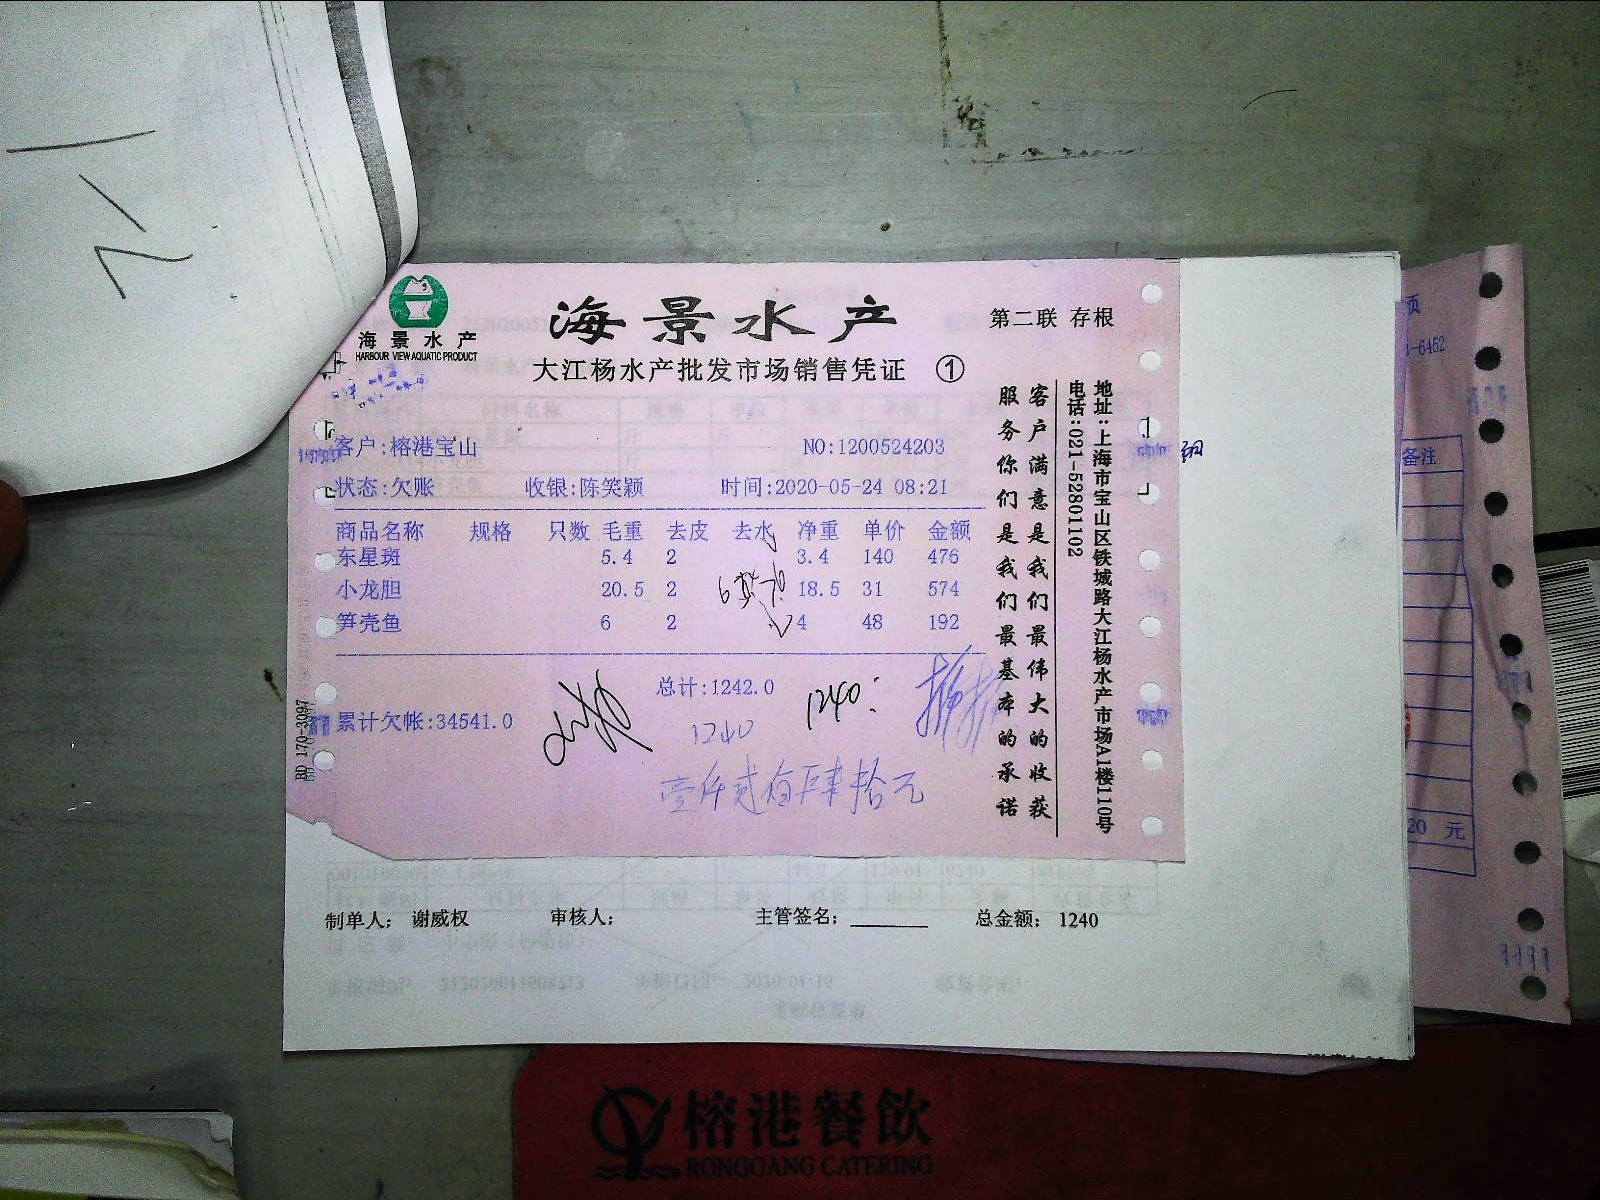 海景水产
HARBOUR VIEW AQUATIC PRODUCT
海景水产
第二联 存根
大江杨水产批发市场销售凭证 ①
客户:榕港宝山 NO:1200524203
状态:欠账 收银:陈笑颖 时间:2020-05-24 08:21
商品名称 规格 只数 毛重 去皮 去水 净重 单价 金额
东星斑 5.4 2 3.4 140 476
小龙胆 20.5 2 18.5 31 574
笋壳鱼 6 2 4 48 192
总计:1242.0
1240
累计欠帐:34541.0
1240
壹仟贰佰肆拾元
客户满意是我们最伟大的收获
服务你们是我们最基本的承诺
地址:上海市宝山区铁城路大江杨水产市场A1楼110号
电话:021-52801102
BD 170-3097
制单人: 谢威权 审核人: 主管签名: 总金额: 1240
页
-6452
备注
20 元
榕港餐飲
RONGGANG CATERING